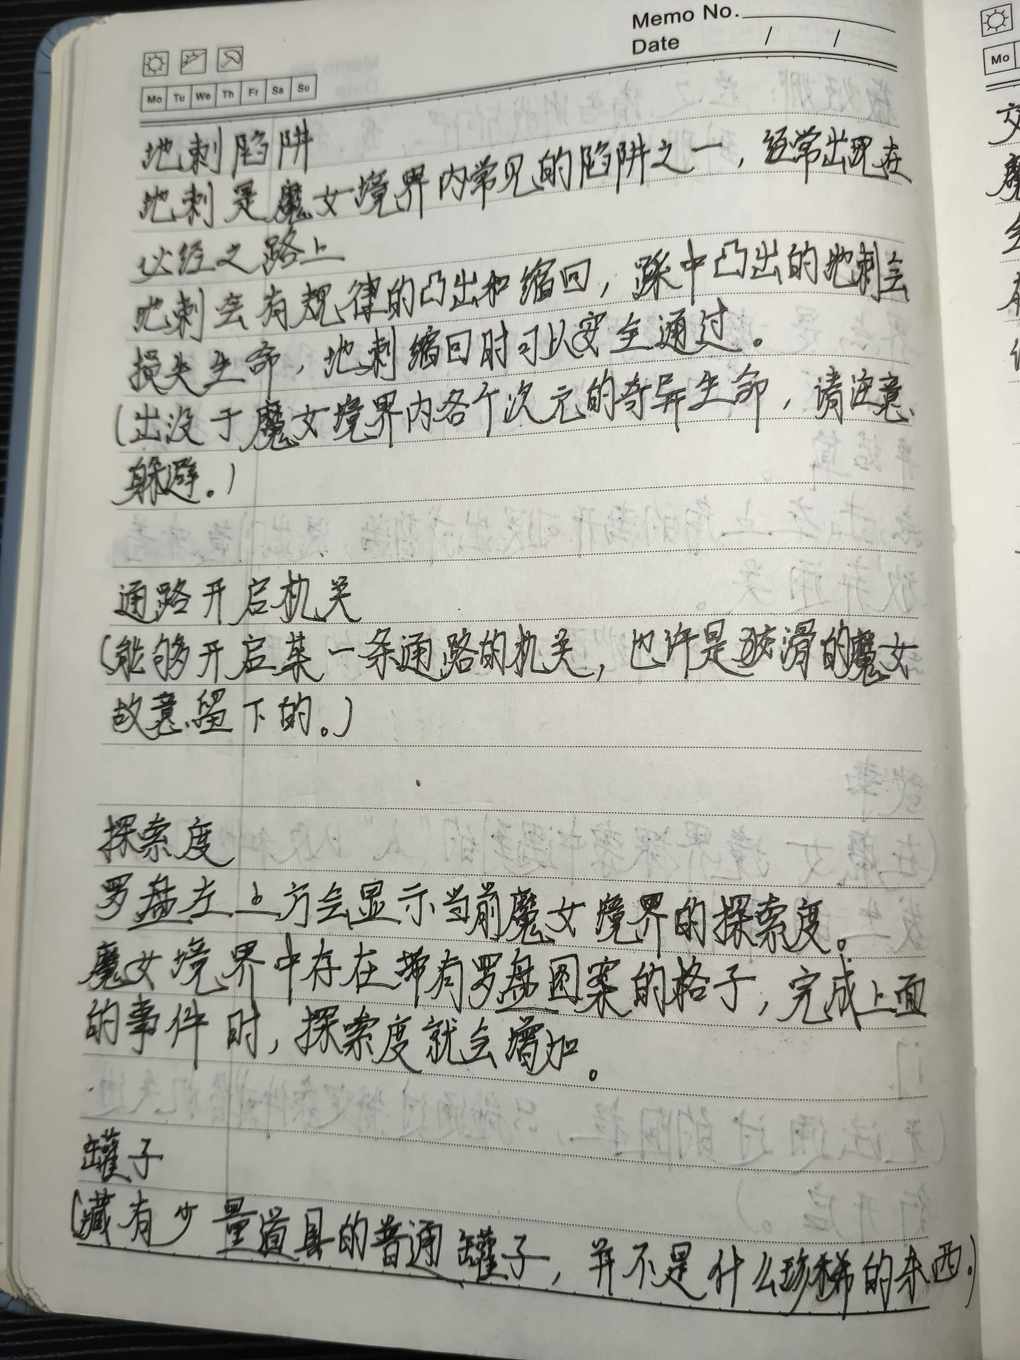 Memo No.
Date / /
Mo Tu We Th Fr Sa Su
地刺陷阱
地刺是魔女境界内常见的陷阱之一，经常出现在
必经之路上
地刺会有规律的凸出和缩回，踩中凸出的地刺会
损失生命，地刺缩回时可以安全通过。
(出没于魔女境界内各个次元的奇异生命，请注意
躲避。)
通路开启机关
(能够开启某一条通路的机关，也许是狡滑的魔女
故意留下的。)
探索度
罗盘左上方会显示当前魔女境界的探索度。
魔女境界中存在带有罗盘图案的格子，完成上面
的事件时，探索度就会增加。
罐子
(藏有少量道具的普通罐子，并不是什么珍稀的东西。)
Mo